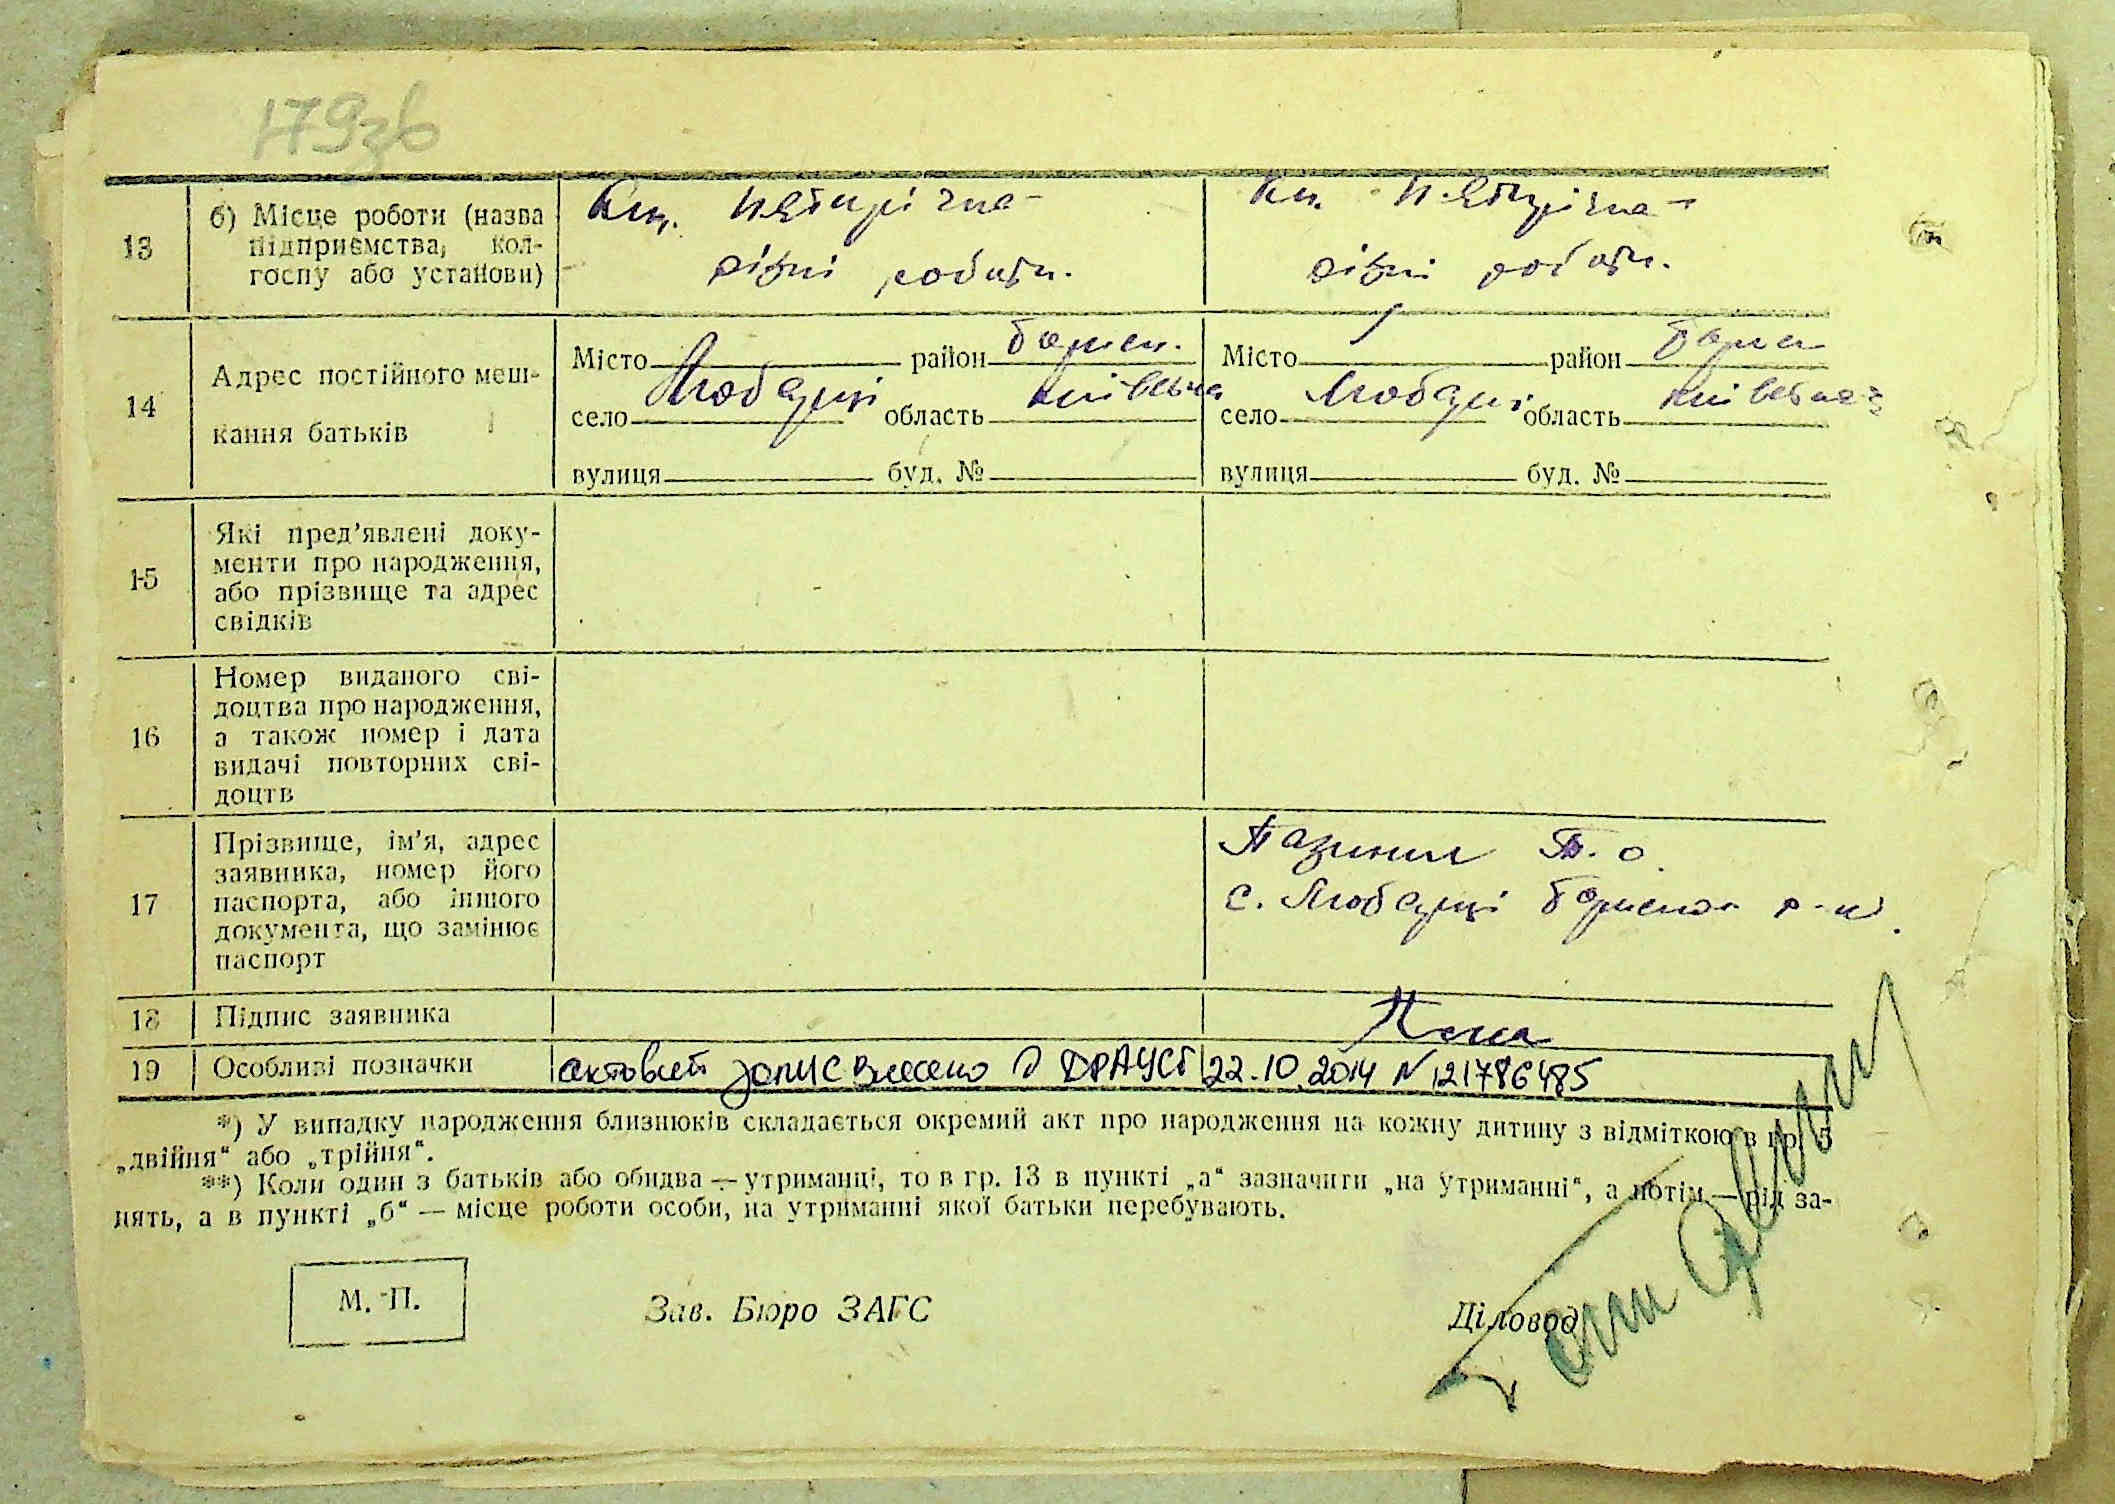 179зв
13
б) Місце роботи (назва
підприємства, кол-
госпу або установи)
Кл. Пятирічна-
різні роботи.
Кл. Пятирічна-
різні роботи.
14
Адрес постійного меш-
кання батьків
Місто район Борисп.
село Любарці область Київська
вулиця буд. №
Місто район Борисп
село Любарці область Київська
вулиця буд. №
15
Які пред’явлені доку-
менти про народження,
або прізвище та адрес
свідків
16
Номер виданого сві-
доцтва про народження,
а також номер і дата
видачі повторних сві-
доцтв
17
Прізвище, ім’я, адрес
заявника, номер його
паспорта, або іншого
документа, що замінює
паспорт
с. Любарці Бориспол р-н.
18
Підпис заявника
19
Особливі позначки
актовий запис внесено в ДРАЦСГ 22.10.2014 N 121786485
*) У випадку народження близнюків складається окремий акт про народження на кожну дитину з відміткою в гр. 5
„двійня“ або „трійня“.
**) Коли один з батьків або обидва — утриманці, то в гр. 13 в пункті „а“ зазначити „на утриманні“, а потім — рід за-
нять, а в пункті „б“ — місце роботи особи, на утриманні якої батьки перебувають.
М. П.
Зав. Бюро ЗАГС
Діловод